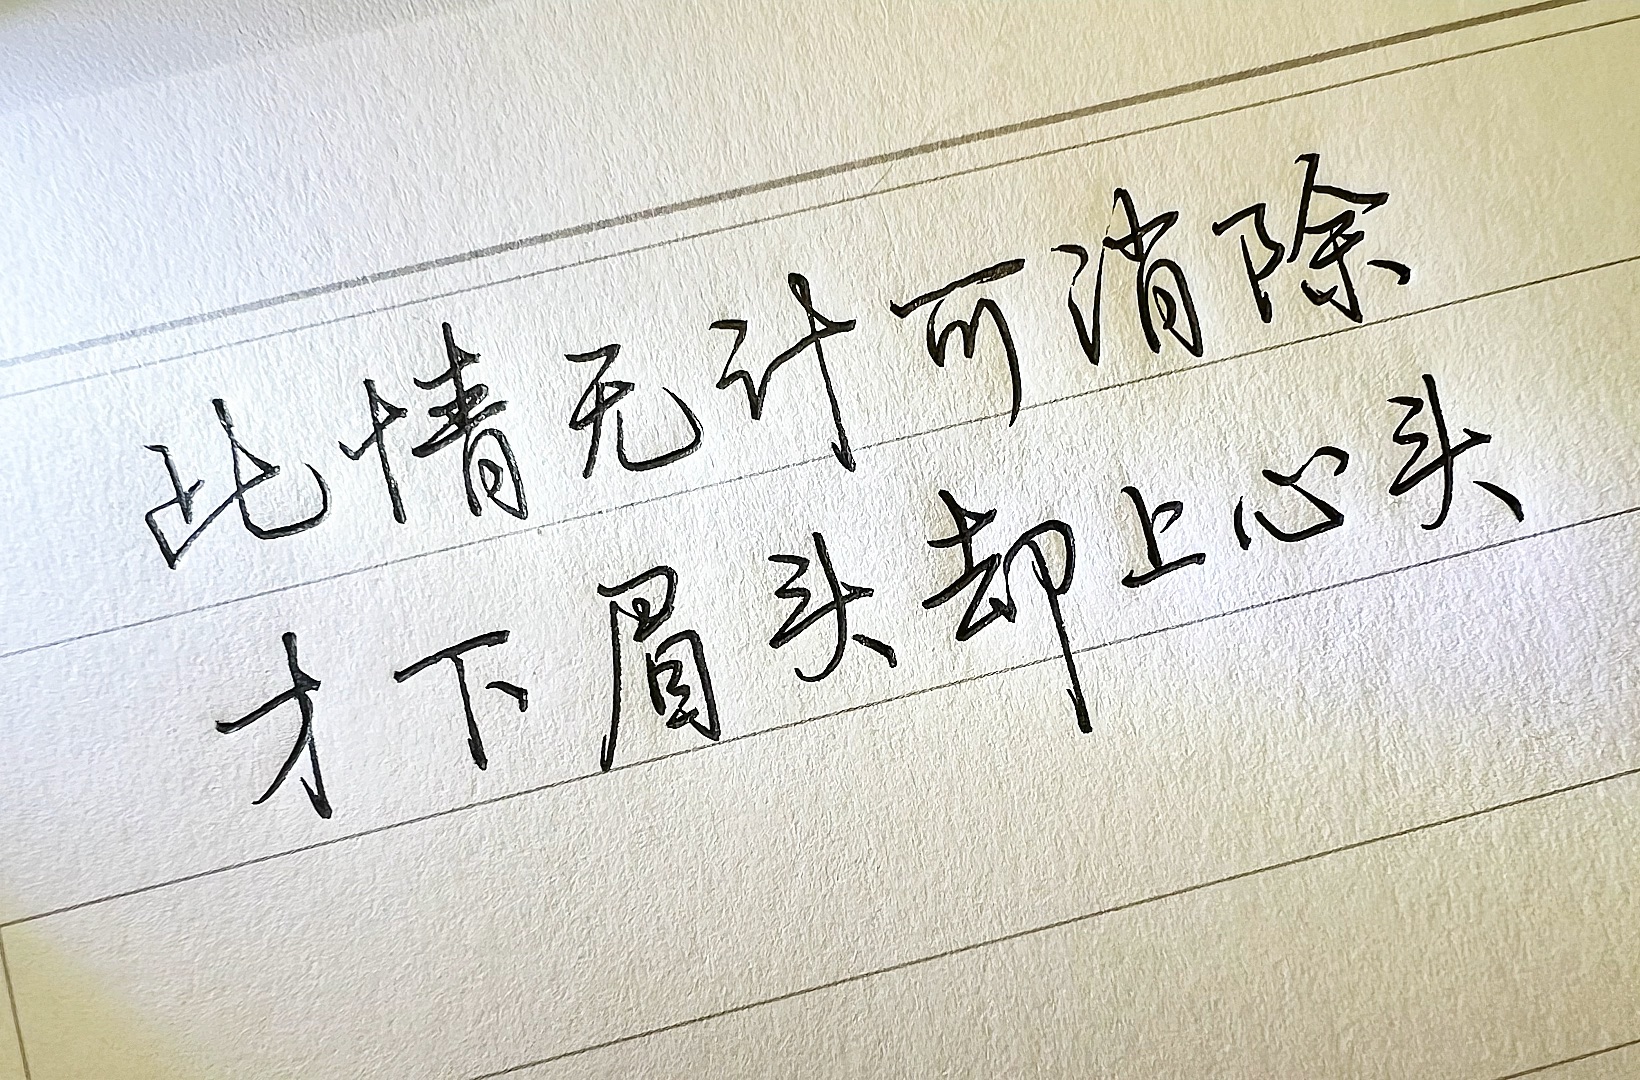 此情无计可消除
才下眉头却上心头